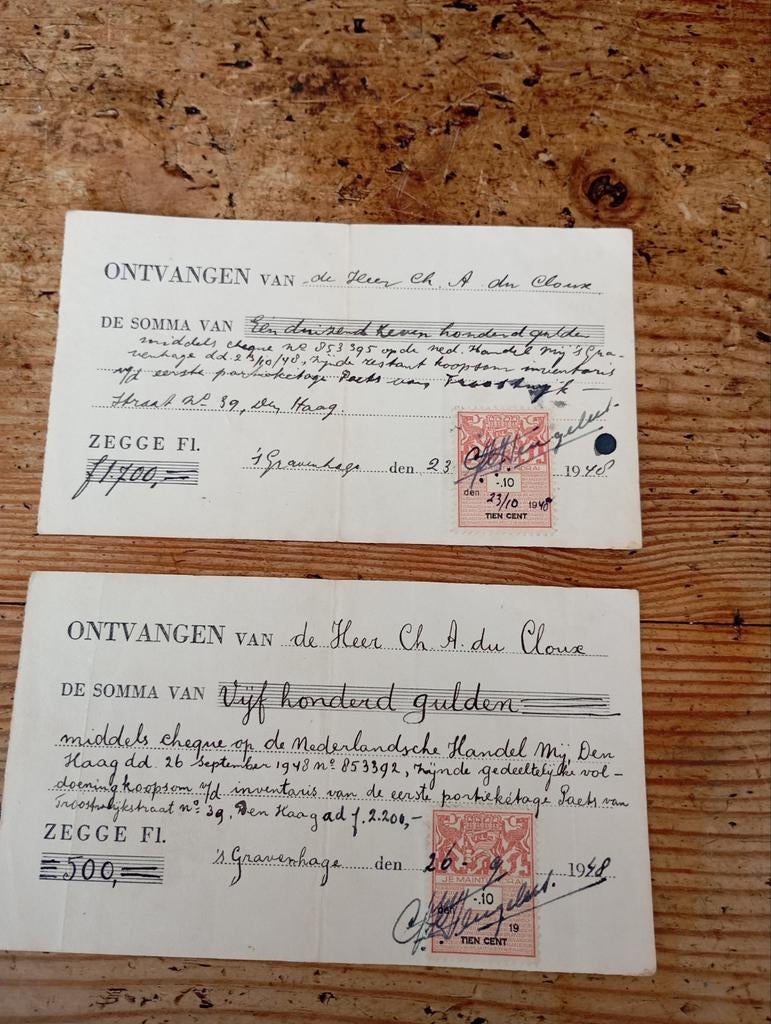 ONTVANGEN VAN de Heer Ch. A du Cloux
DE SOMMA VAN Eén duizend zeven honderd gulden
middels cheque No 853395 op de Ned. Handel Mij 's Gra-
venhage dd. 23/10/48, zijnde restant koopsom inventaris
v/d eerste portieketage Paets van Troostwijk
straat No 39, Den Haag.
ZEGGE Fl.
f 1700,=
's Gravenhage den 23 1948
-.10
den 23/10 1948
TIEN CENT
ONTVANGEN VAN de Heer Ch. A. du Cloux
DE SOMMA VAN Vijf honderd gulden
middels cheque op de Nederlandsche Handel Mij, Den
Haag dd. 26 september 1948 no 853392, zijnde gedeeltelijke vol-
doening koopsom v/d inventaris van de eerste portieketage Paets van
Troostwijkstraat no: 39, Den Haag ad f. 2.200,-
ZEGGE Fl.
=500,=
's Gravenhage den 26 - 9 1948
JE MAINTIENDRAI
-.10
den 19
TIEN CENT